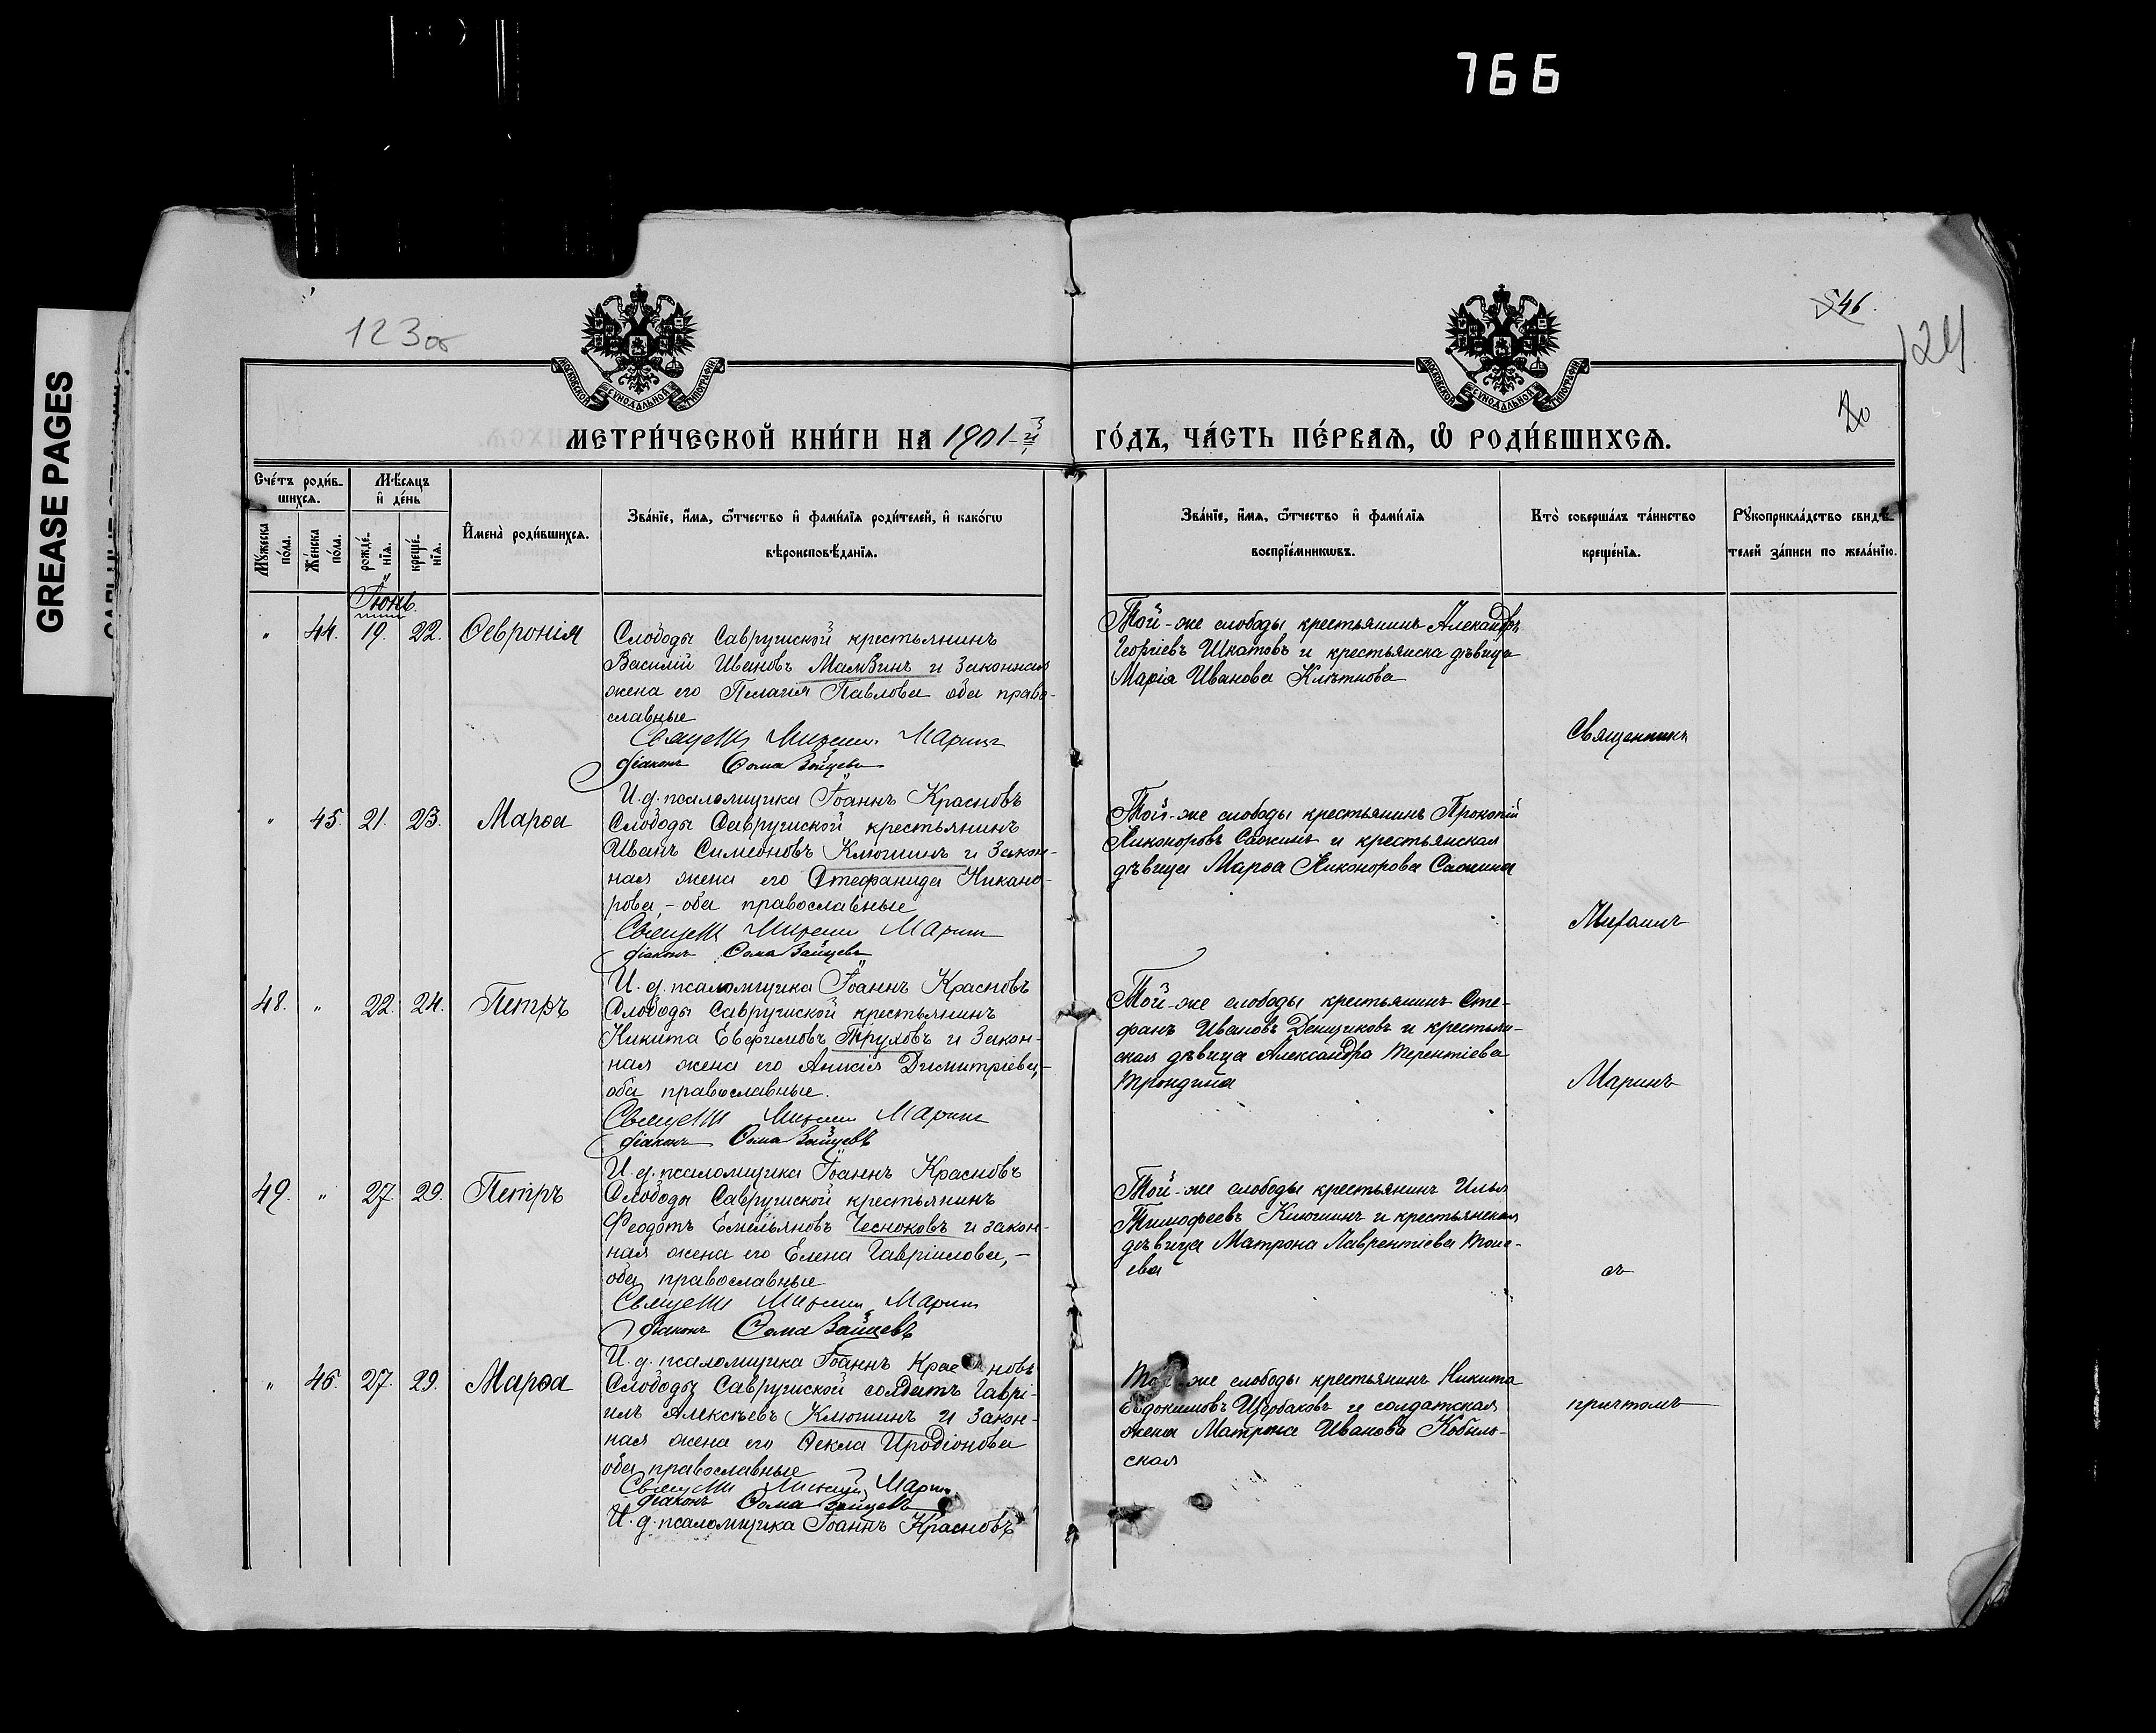 766
GREASE PAGES
123 об
546.
124
20
МОСКОВСКОЙ СУНОДАЛЬНОЙ ТИПОГРАФІИ
МОСКОВСКОЙ СУНОДАЛЬНОЙ ТИПОГРАФІИ
МЕТРИ́ЧЕСКОЙ КНИ́ГИ НА 1901-й ГО́ДЪ, ЧА́СТЬ ПЕ́РВАѦ, Ѡ РОДИ́ВШИХСѦ.
Сче́тъ роди́в-
шихсѧ.
Мѣ́сѧцъ
и҆ де́нь
Мꙋ́жеска по́ла.
Же́нска по́ла.
рожде́-нїѧ.
креще́-нїѧ.
И҆мена̀ роди́вшихсѧ.
Зва́нїе, и҆́мѧ, ѻ҆́тчество и҆ фами́лїѧ роди́телей, и҆ како́гѡ
вѣроисповѣ́данїѧ.
Зва́нїе, и҆́мѧ, ѻ҆́тчество и҆ фами́лїѧ
воспрїе́мникѡвъ.
Кто̀ соверша́лъ та́инство
креще́нїѧ.
Рꙋкоприкла́дство свидѣ́-
телей за́писи по жела́нїю.
Іюнь.
" 44. 19. 22. Ѳевронія
Слободы Савруской крестьянинъ
Василій Ивановъ Мамзинъ и законная
жена его Пелагія Павлова оба право-
славные
Священ Михаил Марин
діаконъ Ѳома Зайцевъ
И. д. псаломщика Іоаннъ Красновъ
Той-же слободы крестьянинъ Александръ
Георгіевъ Шкатовъ и крестьянска дѣвица
Марія Иванова Клѣтнова
Священникъ
" 45. 21. 23. Марѳа
Слободы Савруской крестьянинъ
Иванъ Симеоновъ Клюшинъ и закон-
ная жена его Стефанида Никано-
рова, - оба православные
Священ Михаил Марин
діаконъ Ѳома Зайцевъ
И. д. псаломщика Іоаннъ Красновъ
Той-же слободы крестьянинъ Прокопій
Никоноровъ и крестьянская
дѣвица Марѳа Никонорова
Михаилъ
48. " 22. 24. Петръ
Слободы Савруской крестьянинъ
Никита Евфимовъ Труховъ и закон-
ная жена его Анисія Димитріева,-
оба православные.
Священ Михаил Марин
діаконъ Ѳома Зайцевъ
И. д. псаломщика Іоаннъ Красновъ
Той-же слободы крестьянинъ Сте-
фанъ Ивановъ Денщиковъ и крестьян-
ская дѣвица Александра Терентіева
Трондина
Маринъ
49. " 27. 29. Петръ
Слободы Савруской крестьянинъ
Феодотъ Емельяновъ Чесноковъ и закон-
ная жена его Елена Гавріилова, -
оба православные
Священ Михаил Марин
діаконъ Ѳома Зайцевъ
И. д. псаломщика Іоаннъ Красновъ
Той-же слободы крестьянинъ Илья
Тимофеевъ Клюшинъ и крестьянская
дѣвица Матрона Лаврентіева
съ
" 46. 27. 29. Марѳа
Слободы Савруской солдатъ Гаврі-
илъ Алексѣевъ Клюшинъ и закон-
ная жена его Ѳекла Иродіонова
оба православные
Священ Михаил Марин
діаконъ Ѳома Зайцевъ
И. д. псаломщика Іоаннъ Красновъ
Той-же слободы крестьянинъ Никита
Евдокимовъ Щербаковъ и солдатская
жена Матрона Иванова Кобыль-
ская
причтомъ